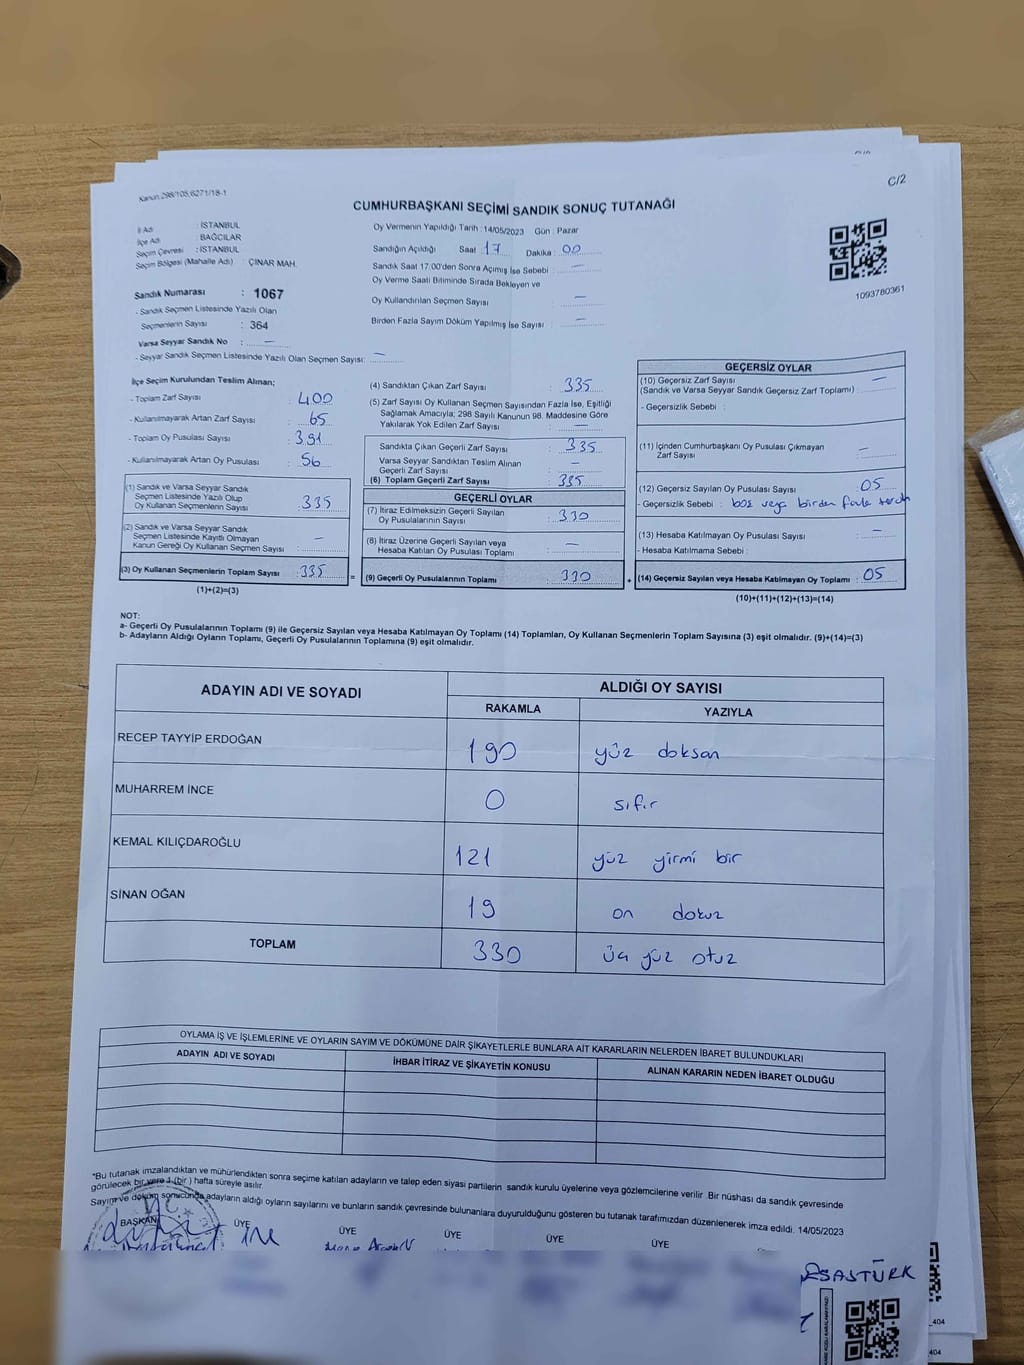 C/2
Kanun:298/105,6271/18-1
CUMHURBAŞKANI SEÇİMİ SANDIK SONUÇ TUTANAĞI
İl Adı : İSTANBUL
İlçe Adı : BAĞCILAR
Seçim Çevresi : İSTANBUL
Seçim Bölgesi (Mahalle Adı) : ÇINAR MAH.
Sandık Numarası : 1067
- Sandık Seçmen Listesinde Yazılı Olan
Seçmenlerin Sayısı : 364
Varsa Seyyar Sandık No : —
- Seyyar Sandık Seçmen Listesinde Yazılı Olan Seçmen Sayısı: —
Oy Vermenin Yapıldığı Tarih : 14/05/2023 Gün : Pazar
Sandığın Açıldığı Saat : 17 Dakika : 00
Sandık Saat 17:00'den Sonra Açımış İse Sebebi : —
Oy Verme Saati Bitiminde Sırada Bekleyen ve
Oy Kullandırılan Seçmen Sayısı : —
Birden Fazla Sayım Döküm Yapılmış İse Sayısı : —
1093780361
İlçe Seçim Kurulundan Teslim Alınan;
- Toplam Zarf Sayısı : 400
- Kullanılmayarak Artan Zarf Sayısı : 65
- Toplam Oy Pusulası Sayısı : 391
- Kullanılmayarak Artan Oy Pusulası : 56
(1) Sandık ve Varsa Seyyar Sandık
Seçmen Listesinde Yazılı Olup
Oy Kullanan Seçmenlerin Sayısı : 335
(2) Sandık ve Varsa Seyyar Sandık
Seçmen Listesinde Kayıtlı Olmayan
Kanun Gereği Oy Kullanan Seçmen Sayısı : —
(3) Oy Kullanan Seçmenlerin Toplam Sayısı : 335
(1)+(2)=(3)
(4) Sandıktan Çıkan Zarf Sayısı : 335
(5) Zarf Sayısı Oy Kullanan Seçmen Sayısından Fazla İse, Eşitliği
Sağlamak Amacıyla; 298 Sayılı Kanunun 98. Maddesine Göre
Yakılarak Yok Edilen Zarf Sayısı : —
Sandıkta Çıkan Geçerli Zarf Sayısı : 335
Varsa Seyyar Sandıktan Teslim Alınan
Geçerli Zarf Sayısı : —
(6) Toplam Geçerli Zarf Sayısı : 335
GEÇERLİ OYLAR
(7) İtiraz Edilmeksizin Geçerli Sayılan
Oy Pusulalarının Sayısı : 330
(8) İtiraz Üzerine Geçerli Sayılan veya
Hesaba Katılan Oy Pusulası Toplamı : —
= (9) Geçerli Oy Pusulalarının Toplamı : 330
GEÇERSİZ OYLAR
(10) Geçersiz Zarf Sayısı
(Sandık ve Varsa Seyyar Sandık Geçersiz Zarf Toplamı) : —
- Geçersizlik Sebebi :
(11) İçinden Cumhurbaşkanı Oy Pusulası Çıkmayan
Zarf Sayısı : —
(12) Geçersiz Sayılan Oy Pusulası Sayısı : 05
- Geçersizlik Sebebi : boş veya birden fazla tercih
(13) Hesaba Katılmayan Oy Pusulası Sayısı : —
- Hesaba Katılmama Sebebi :
+ (14) Geçersiz Sayılan veya Hesaba Katılmayan Oy Toplamı : 05
(10)+(11)+(12)+(13)=(14)
NOT:
a- Geçerli Oy Pusulalarının Toplamı (9) ile Geçersiz Sayılan veya Hesaba Katılmayan Oy Toplamı (14) Toplamları, Oy Kullanan Seçmenlerin Toplam Sayısına (3) eşit olmalıdır. (9)+(14)=(3)
b- Adayların Aldığı Oyların Toplamı, Geçerli Oy Pusulalarının Toplamına (9) eşit olmalıdır.
ADAYIN ADI VE SOYADI
ALDIĞI OY SAYISI
RAKAMLA YAZIYLA
RECEP TAYYİP ERDOĞAN 190 yüz doksan
MUHARREM İNCE 0 sıfır
KEMAL KILIÇDAROĞLU 121 yüz yirmi bir
SİNAN OĞAN 19 on dokuz
TOPLAM 330 üç yüz otuz
OYLAMA İŞ VE İŞLEMLERİNE VE OYLARIN SAYIM VE DÖKÜMÜNE DAİR ŞİKAYETLERLE BUNLARA AİT KARARLARIN NELERDEN İBARET BULUNDUKLARI
ADAYIN ADI VE SOYADI İHBAR İTİRAZ VE ŞİKAYETİN KONUSU ALINAN KARARIN NEDEN İBARET OLDUĞU
*Bu tutanak imzalandıktan ve mühürlendikten sonra seçime katılan adayların ve talep eden siyasi partilerin sandık kurulu üyelerine veya gözlemcilerine verilir. Bir nüshası da sandık çevresinde
görülecek bir yere 1 (bir) hafta süreyle asılır.
Sayım ve döküm sonucunda adayların aldığı oyların sayılarını ve bunların sandık çevresinde bulunanlara duyurulduğunu gösteren bu tutanak tarafımızdan düzenlenerek imza edildi. 14/05/2023
BAŞKAN ÜYE ÜYE ÜYE ÜYE ÜYE
404
404